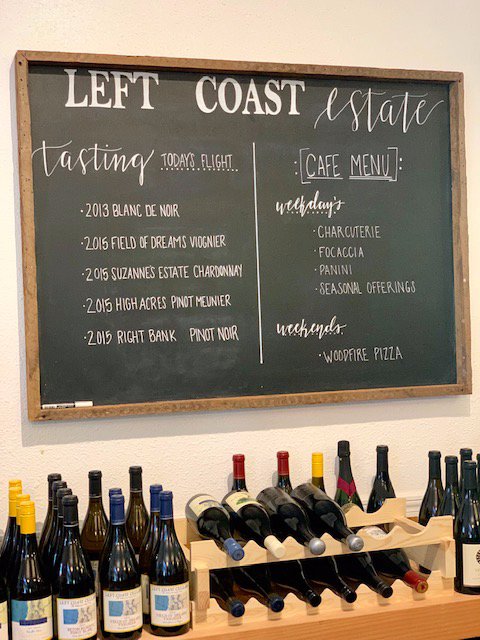 LEFT COAST estate
tasting TODAY'S FLIGHT
· 2013 BLANC DE NOIR
· 2015 FIELD OF DREAMS VIOGNIER
· 2015 SUZANNE'S ESTATE CHARDONNAY
· 2015 HIGH ACRES PINOT MEUNIER
· 2015 RIGHT BANK PINOT NOIR
· [CAFE MENU] :
weekday's
· CHARCUTERIE
· FOCACCIA
· PANINI
· SEASONAL OFFERINGS
weekends
· WOODFIRE PIZZA
LEFT COAST
LEFT COAST
LEFT COAST